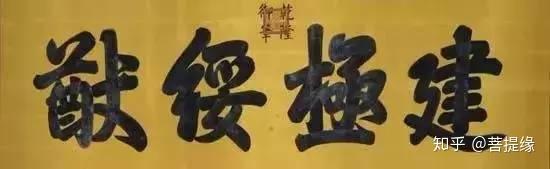 乾隆御筆
建極綏猷
知乎 @菩提缘